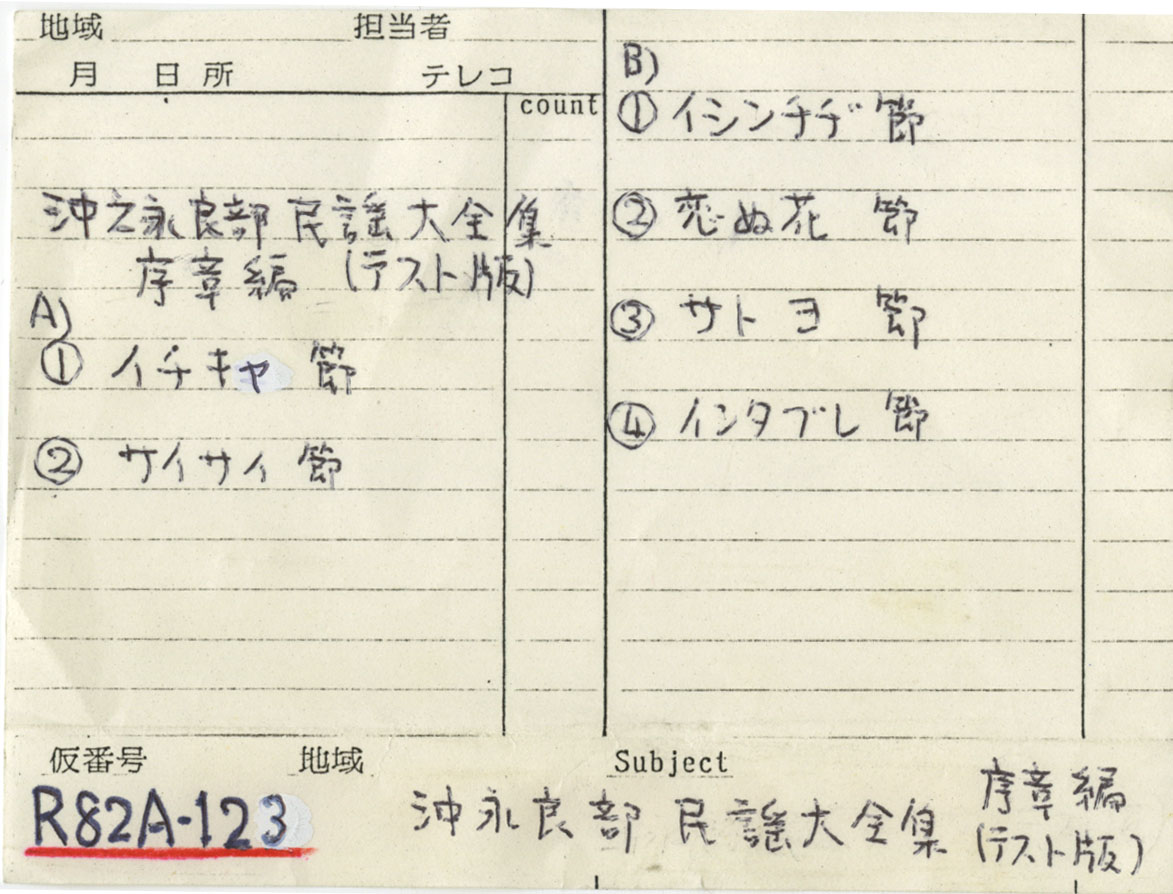 地域 担当者
月 日 所 テレコ
count
沖之永良部 民謡大全集
序章編 (テスト版)
A)
① イチキャ 節
② サイサイ 節
B)
① イシンチヂ 節
② 恋ぬ花 節
③ サトヨ 節
④ インタブレ 節
仮番号 地域 Subject
R82A-123
沖永良部 民謡大全集 序章編
(テスト版)